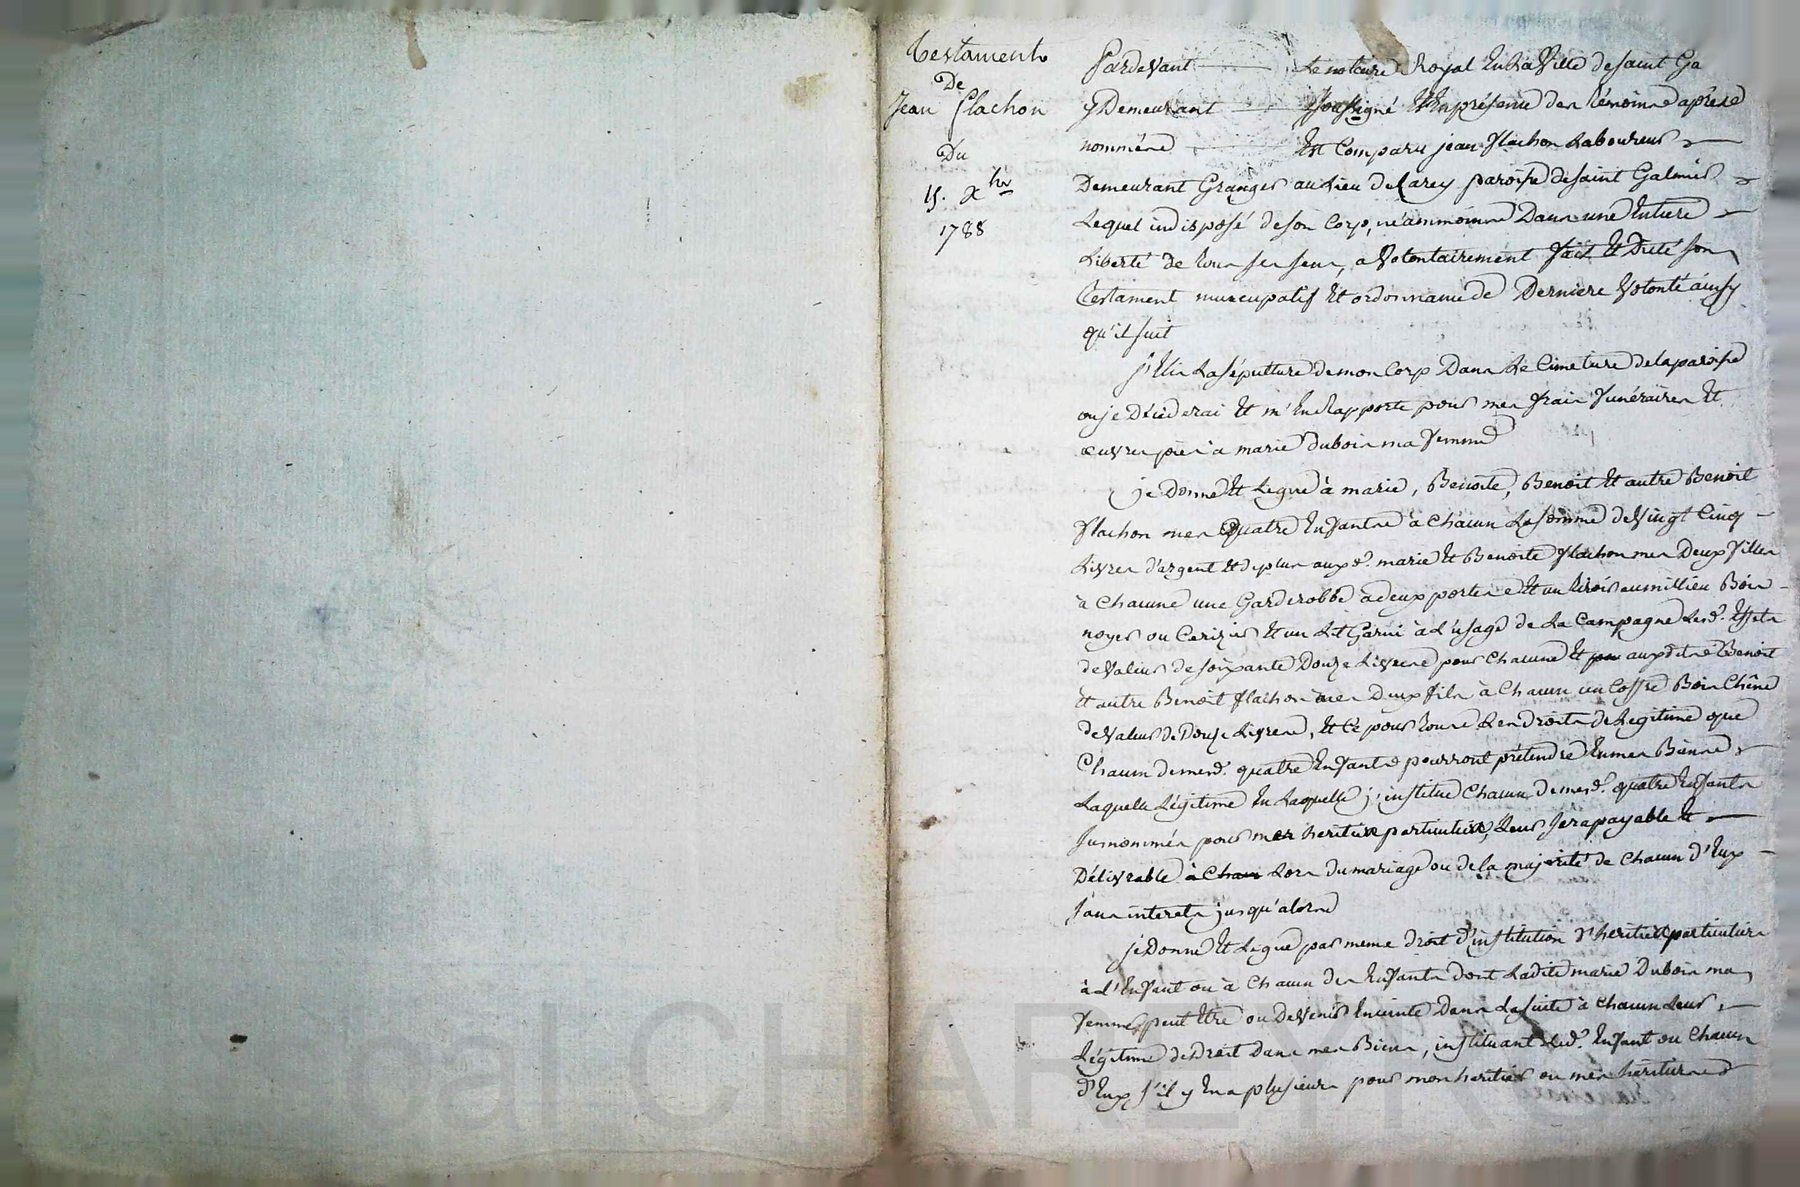 Testament
De
Jean flachon
Du
15. Xbre
1788
Pardevant Le notaire Royal En La Ville de saint Ga
y Demeurant soussigné Et En présence des témoins après
nommés Est Comparu jean flachon Laboureur
Demeurant Granger au Lieu de paroisse de saint Galmier
Lequel indisposé de son Corp, néammoins Dans une Entiere
Liberté de tous ses sens, a Volontairement fait Et Dicté son
testament nuncupatif Et ordonnance de Derniere Volonté ainsy
qu'il suit
j'Elis La sépulture de mon Corp Dans Le Cimetiere de la paroisse
ou je Décéderai Et m'En Rapporte pour mes frais funéraires Et
œuvres pies à marie dubois ma femme
je Donne Et Legue à marie, Benoite, Benoit Et autre Benoit
flachon mes Quatre Enfants à Chacun La somme de Vingt Cinq
Livres d'argent Et de plus aux d. marie Et Benoite flachon mes Deux filles
à Chacune une Garderobbe à deux portes Et un tiroir au millieu Bois
noyer ou Cerizier Et un Lit Garni à L'usage de La Campagne Les d. Effets
de Valeur de soixante Douze Livres pour Chacune Et aux dits Benoit
Et autre Benoit flachon mes Deux fils à Chacun un Coffre Bois Chêne
de Valeur de Douze Livres, Et Ce pour tous Les droits de Legitime que
Chacun de mes d. quatre Enfants pourront prétendre En mes Biens
Laquelle Légitime En Laquelle j'institue Chacun de mes d. quatre Enfants
susnommés pour mes heritiers particuliers, Leur sera payable Et
Délivrable à Chacun Lors du mariage ou de la majorité de Chacun d'Eux
sans interets jusqu'alors
je Donne Et Legue par meme droit d'institution d'heritier particuliere
à L'Enfant ou à Chacun des Enfants dont Ladite marie Dubois ma
femme peut Etre ou Devenir Enceinte Dans La suite à Chacun Leur
Légitime de Droit Dans mes Biens, instituant Led. Enfant ou Chacun
d'Eux s'il y En a plusieurs pour mon heritier ou mes heritiers